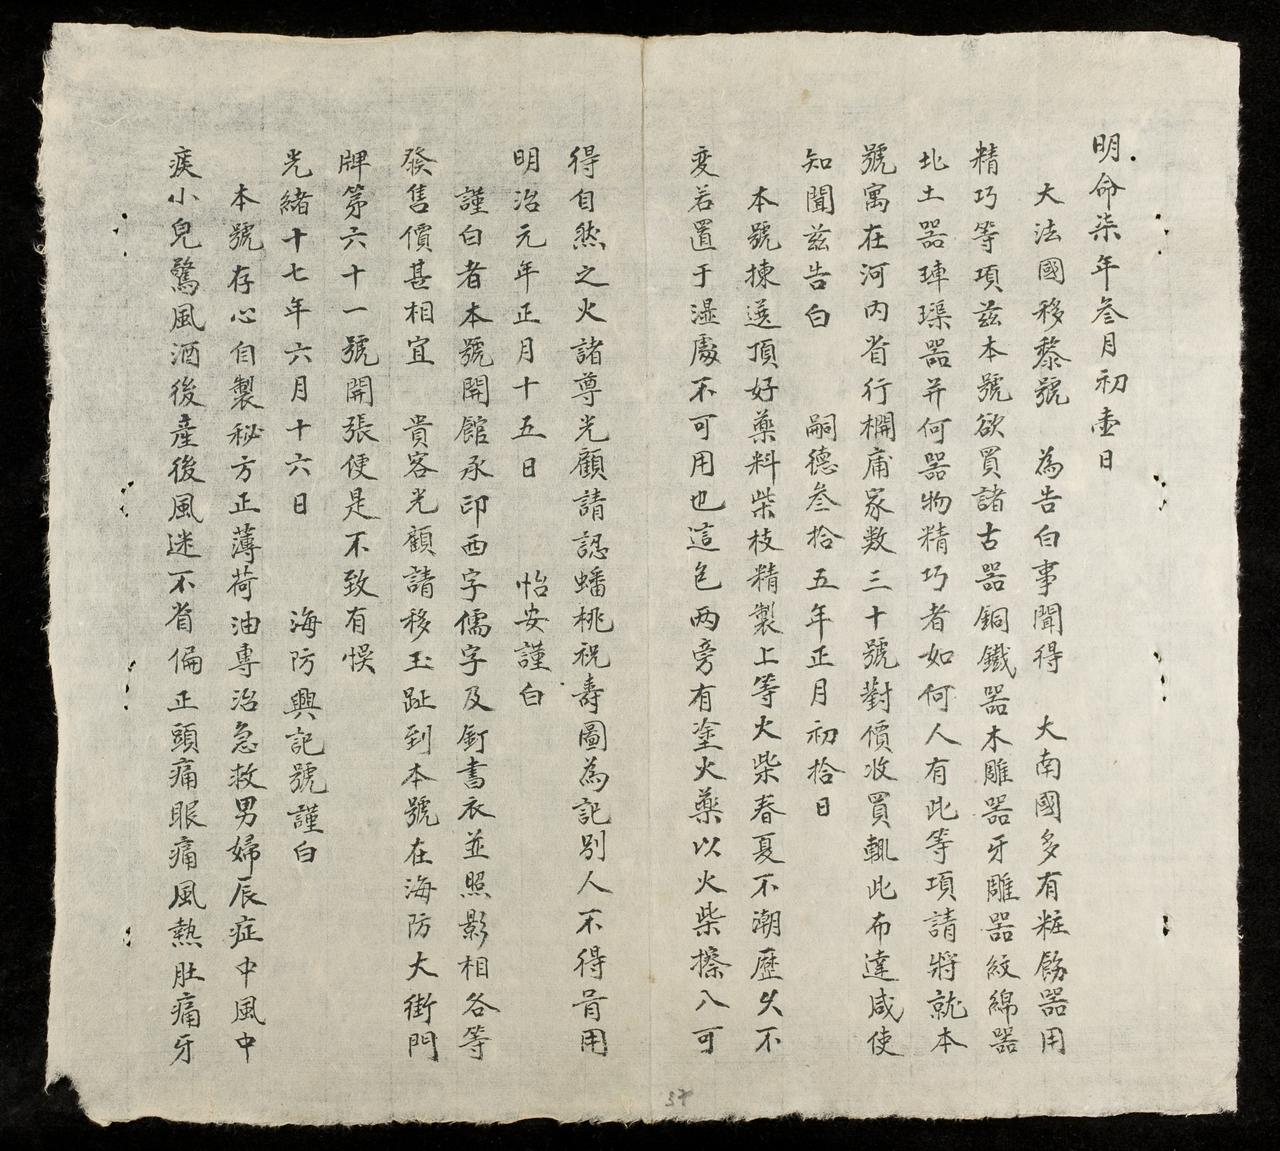 明命柒年叁月初壹日
大法國移黎號　為告白事聞得　大南國多有粧飭器用
精巧等項茲本號欲買諸古器銅鐵器木雕器牙雕器紋綿器
北土器琿璖器并何器物精巧者如何人有此等項請將就本
號寓在河內省行棡庯家数三十號對價收買輒此布達咸使
知聞茲告白　　嗣德叁拾五年正月初拾日
本號揀選頂好藥料柴枝精製上等火柴春夏不潮歷久不
変若置于湿處不可用也這包两旁有塗火藥以火柴擦八可
得自然之火諸尊光顧請認蟠桃祝壽圖為記别人不得冐用
明治元年正月十五日　　怡安謹白
謹白者本號開館承印西字儒字及釘書衣並照影相各等
發售價甚相宜　貴客光顧請移玉趾到本號在海防大街門
牌第六十一號開張便是不致有悞
光緒十七年六月十六日　　海防興記號謹白
本號存心自製秘方正薄荷油專治急救男婦辰症中風中
痰小兒驚風酒後產後風迷不省偏正頭痛眼痛風熱肚痛牙
37